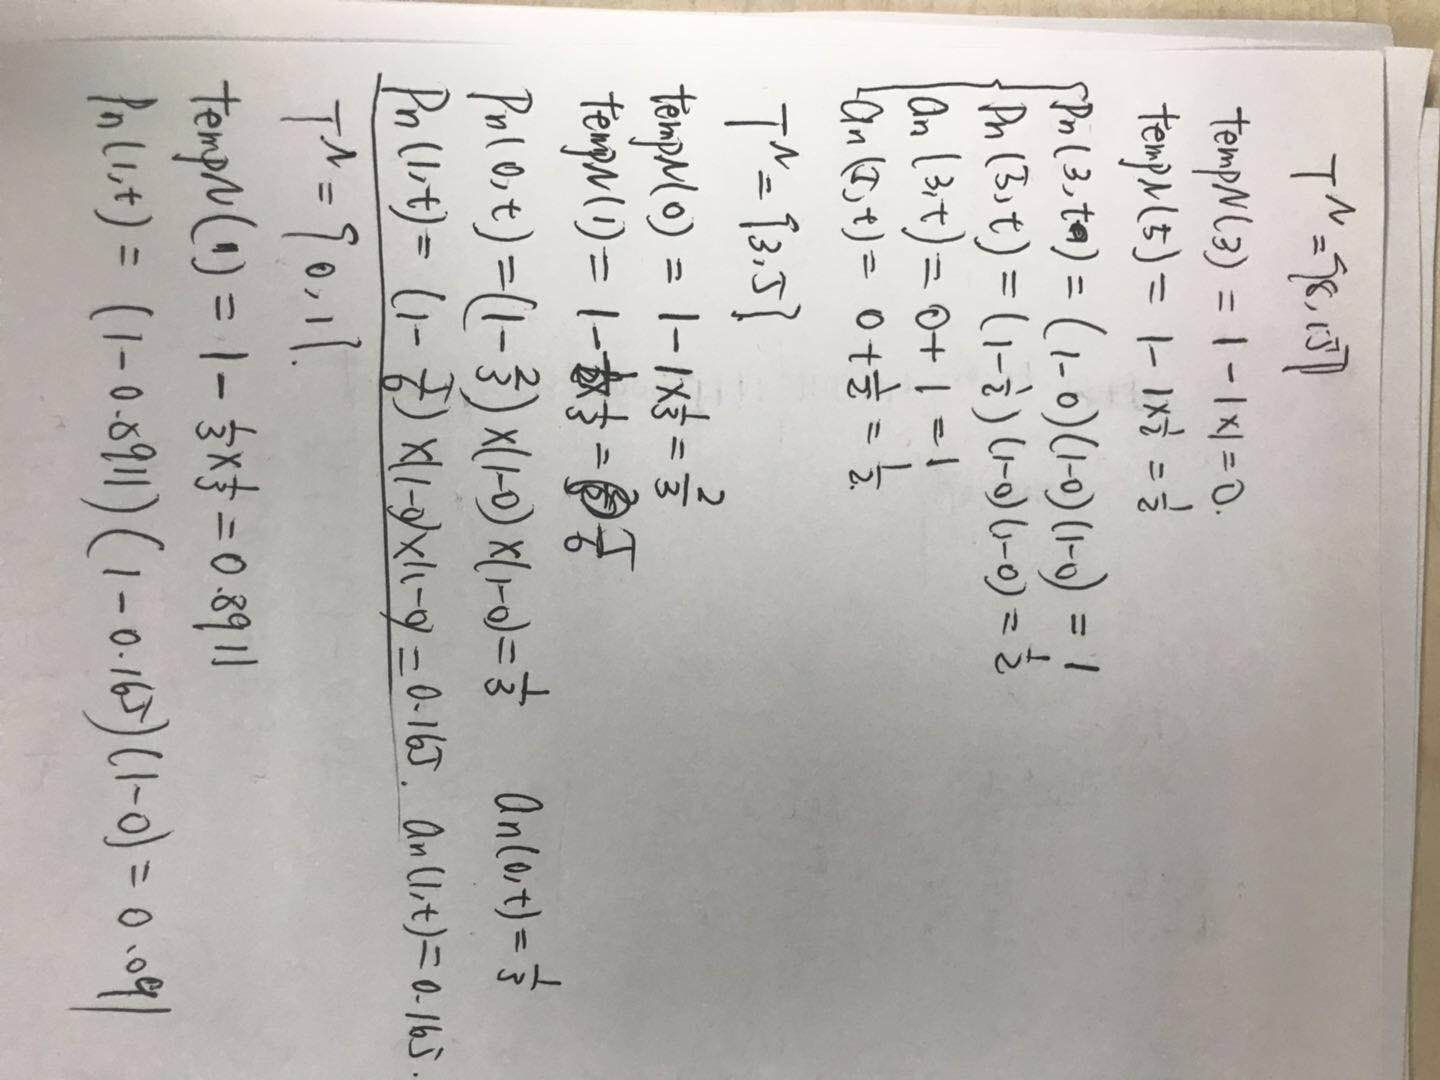 T^N = {8, 15}
tempN(3) = 1 - 1×1 = 0.
tempN(5) = 1 - 1×1/2 = 1/2
Pn(3,t) = (1-0)(1-0)(1-0) = 1
Pn(5,t) = (1-1/2)(1-0)(1-0) = 1/2
an(3,t) = 0+1 = 1
an(5,t) = 0+1/2 = 1/2.
T^N = {3,5}
tempN(0) = 1 - 1×1/3 = 2/3
tempN(1) = 1 - 1/2×1/3 = 5/6
Pn(0,t) = (1-2/3)×(1-0)×(1-0) = 1/3 an(0,t) = 1/3
Pn(1,t) = (1-5/6)×(1-0)×(1-0) = 0.165. an(1,t) = 0.165.
T^N = {0,1}.
tempN(1) = 1 - 1/3×1/3 = 0.8911
Pn(1,t) = (1-0.8911)(1-0.165)(1-0) = 0.091